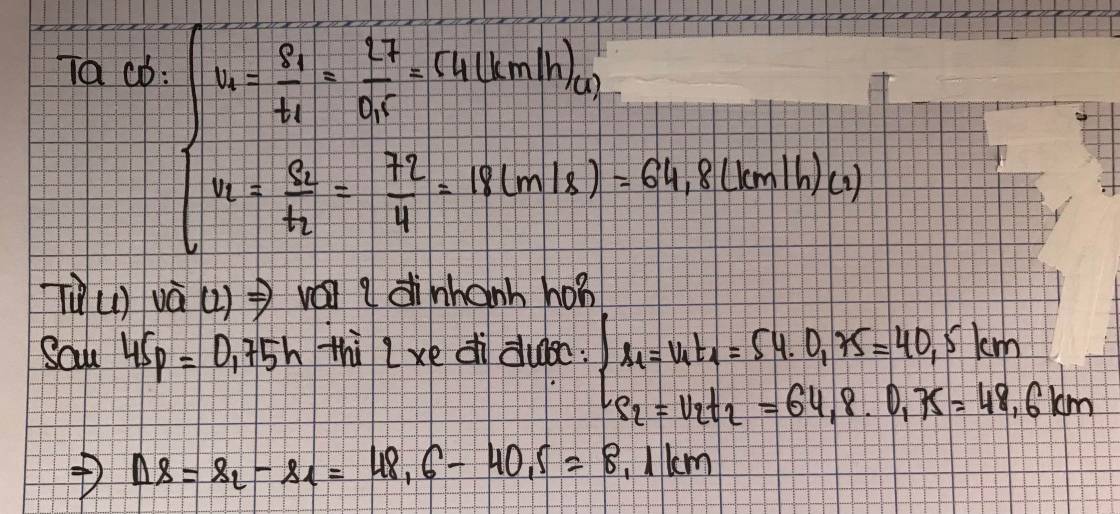 Ta có: { v₁ = s₁/t₁ = 27/0,5 = 54 (km/h) (1)
v₂ = s₂/t₂ = 72/4 = 18 (m/s) = 64,8 (km/h) (2)
Từ (1) và (2) ⇒ vật 2 đi nhanh hơn
Sau 45p = 0,75h thì 2 xe đi được: { s₁ = v₁t₁ = 54. 0,75 = 40,5 km
s₂ = v₂t₂ = 64,8 . 0,75 = 48,6 km
⇒ Δs = s₂ - s₁ = 48,6 - 40,5 = 8,1 km